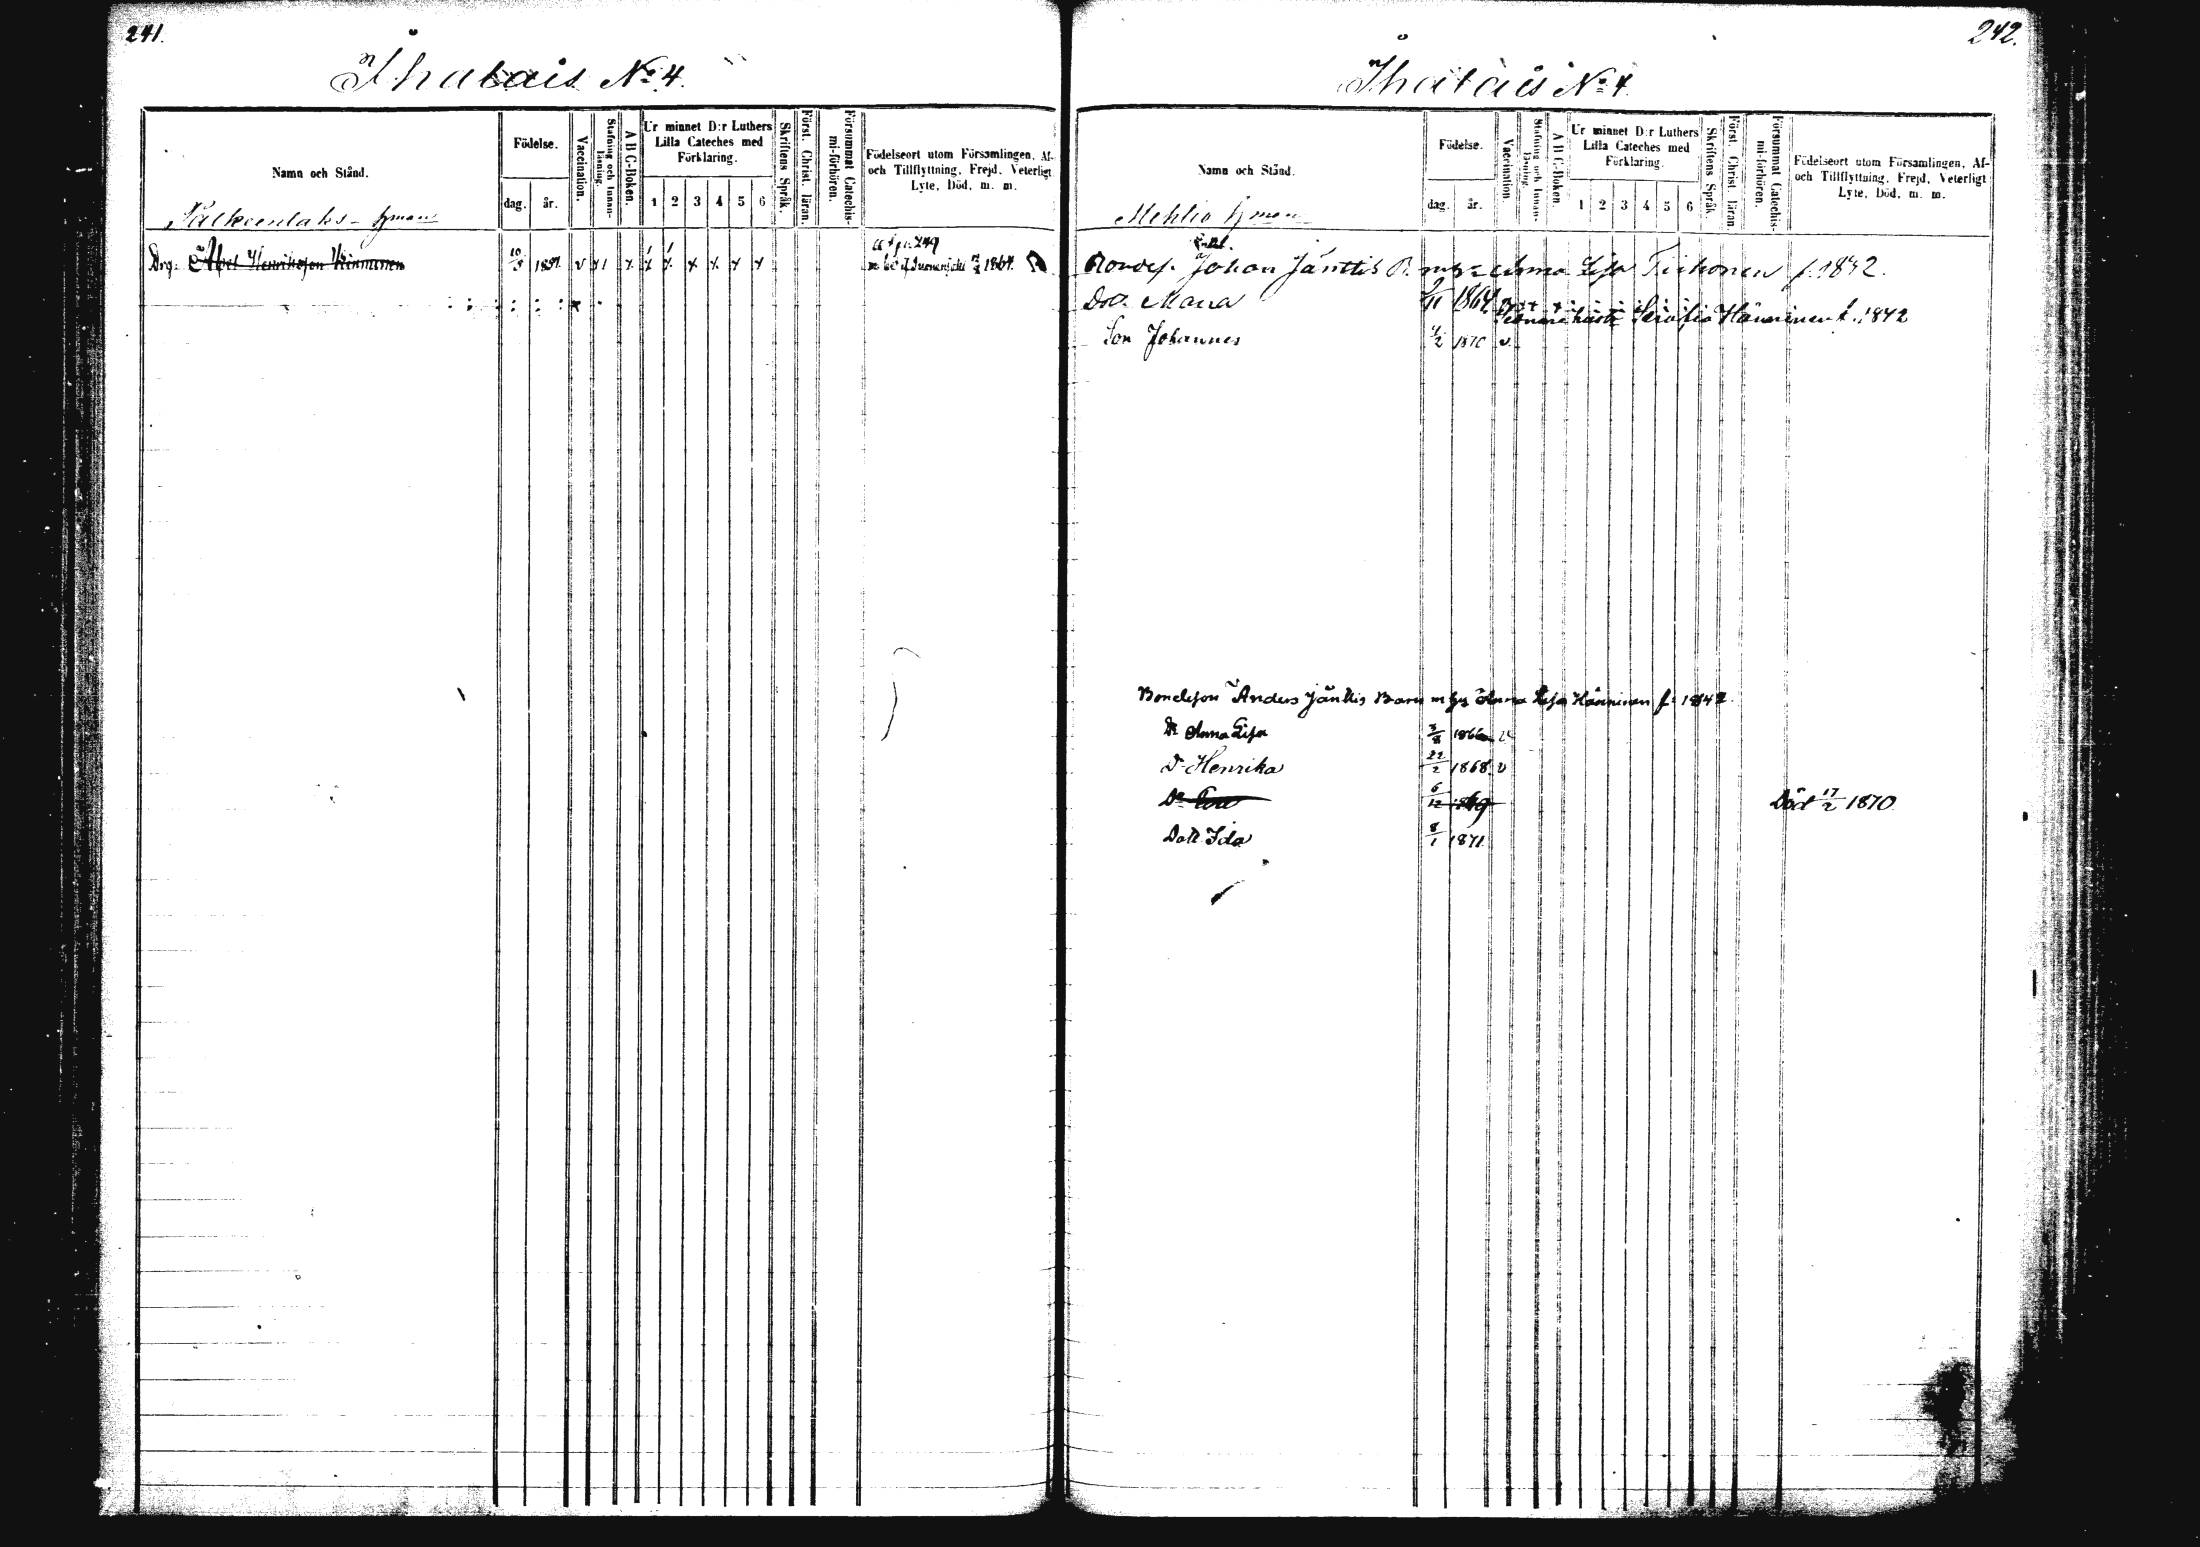 241.
Ihatais No 4.
Namn och Stånd.
Födelse.
dag.
år.
Vaccination.
Stafning och Innan-läsning.
A B C-Boken.
Ur minnet D:r Luthers
Lilla Cateches med
Förklaring.
1 2 3 4 5 6
Skriftens Språk.
Först. Christ. läran.
Försummat Catechis-mi-förhören.
Födelseort utom Församlingen, Af-
och Tillflyttning, Frejd, Veterligt
Lyte, Död, m. m.
Drg: Abel Henriksson Kinnunen 10/3 1851 v
1864.
242.
Ihatais No 4
Namn och Stånd.
Födelse.
dag.
år.
Vaccination.
Stafning och Innan-läsning.
A B C-Boken.
Ur minnet D:r Luthers
Lilla Cateches med
Förklaring.
1 2 3 4 5 6
Skriftens Språk.
Först. Christ. läran.
Försummat Catechis-mi-förhören.
Födelseort utom Församlingen, Af-
och Tillflyttning, Frejd, Veterligt
Lyte, Död, m. m.
Mehtio
Enkl.
Bondes. Johan Jänttis B. Anna Lisa Tiihonen f. 1842.
Dot. Maria 11 1864
Hänninen f. 1842
Son Johannes 1870 v.
Bondeson Anders Jänttis Barn m hu Anna Lisa Hänninen f: 1842
Dr Anna Lisa 3/8 1866 v
Dr Henrika 22/2 1868 v
Dr Eva 6/12 1869 Död 17/2 1870.
Dotr Ida 8/1 1871.